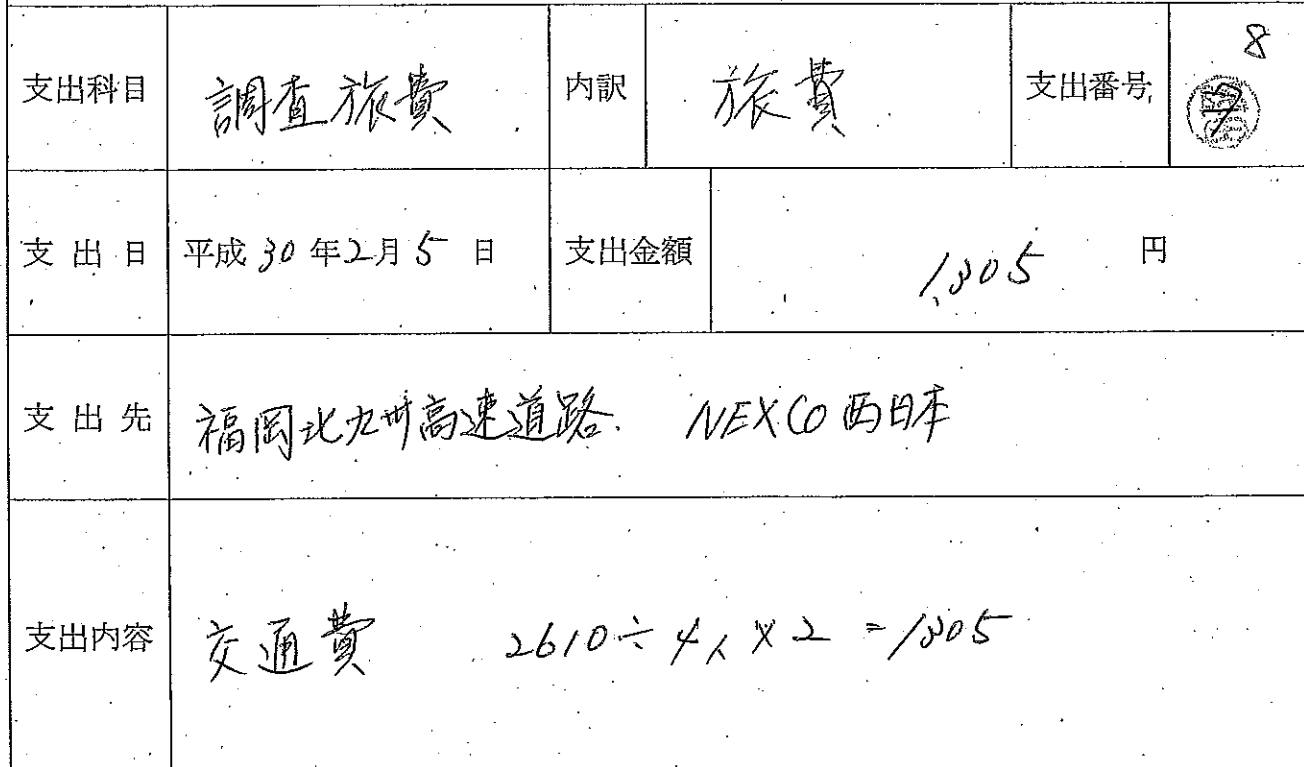 支出科目 調査旅費 内訳 旅費 支出番号 8
支出日 平成30年2月5日 支出金額 1,305 円
支出先 福岡北九州高速道路. NEXCO西日本
支出内容 交通費 2610÷4人×2=1305